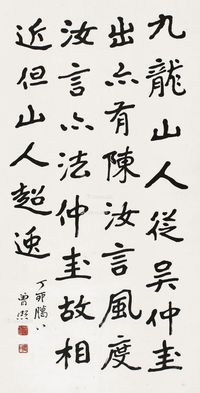 九龍山人從吳仲圭
出亦有陳汝言風度
汝言亦法仲圭故相
近但山人超逸
丁卯臘八
曾熙